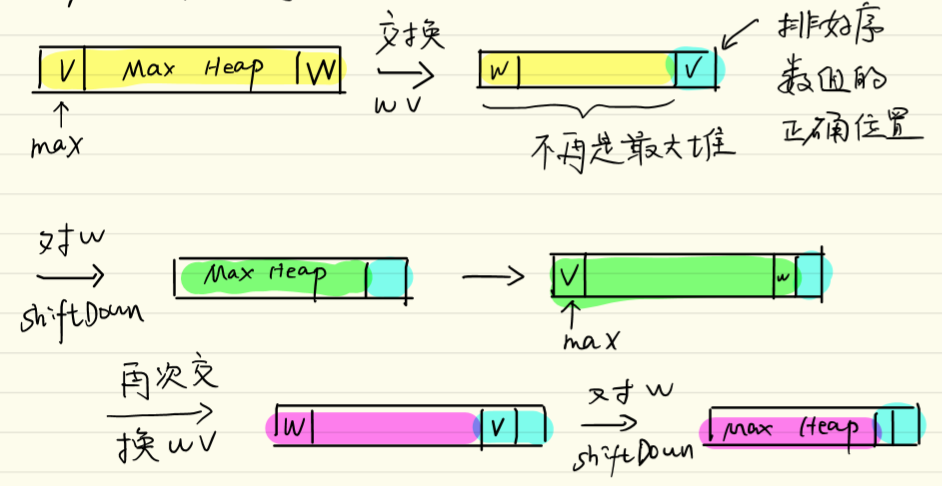 V Max Heap W
max
交换
W V
W V
不再是最大堆
排好序
数值的
正确位置
对W
shiftDown
Max Heap
V w
max
再次交
换WV
W V
对W
shiftDown
Max Heap